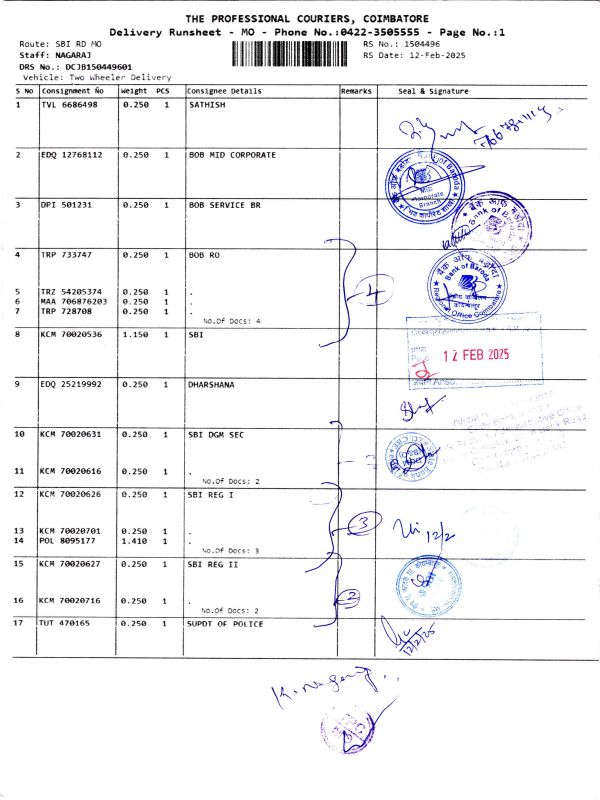 THE PROFESSIONAL COURIERS, COIMBATORE
Delivery Runsheet - MO - Phone No.:0422-3505555 - Page No.:1
Route: SBI RD MO
RS No.: 1504496
Staff: NAGARAJ
RS Date: 12-Feb-2025
DRS No.: DCJB150449601
Vehicle: Two Wheeler Delivery
S No Consignment No Weight PCS Consignee Details Remarks Seal & Signature
1 TVL 6686498 0.250 1 SATHISH
2 EDQ 12768112 0.250 1 BOB MID CORPORATE
Bank of Baroda
MID
Corporate
Branch
3 DPI 501231 0.250 1 BOB SERVICE BR
4 TRP 733747 0.250 1 BOB RO
Bank of Baroda
Regional Office Coimbatore
5 TRZ 54205374 0.250 1 .
6 MAA 706876203 0.250 1 .
7 TRP 728708 0.250 1 .
No.Of Docs: 4
4
8 KCM 70020536 1.150 1 SBI
12 FEB 2025
9 EDQ 25219992 0.250 1 DHARSHANA
10 KCM 70020631 0.250 1 SBI DGM SEC
11 KCM 70020616 0.250 1 .
No.Of Docs: 2
12 KCM 70020626 0.250 1 SBI REG I
13 KCM 70020701 0.250 1 .
14 POL 8095177 1.410 1 .
No.Of Docs: 3
3
12/2
15 KCM 70020627 0.250 1 SBI REG II
16 KCM 70020716 0.250 1 .
No.Of Docs: 2
2
17 TUT 470165 0.250 1 SUPDT OF POLICE
12/2/25
K. Nagaraj